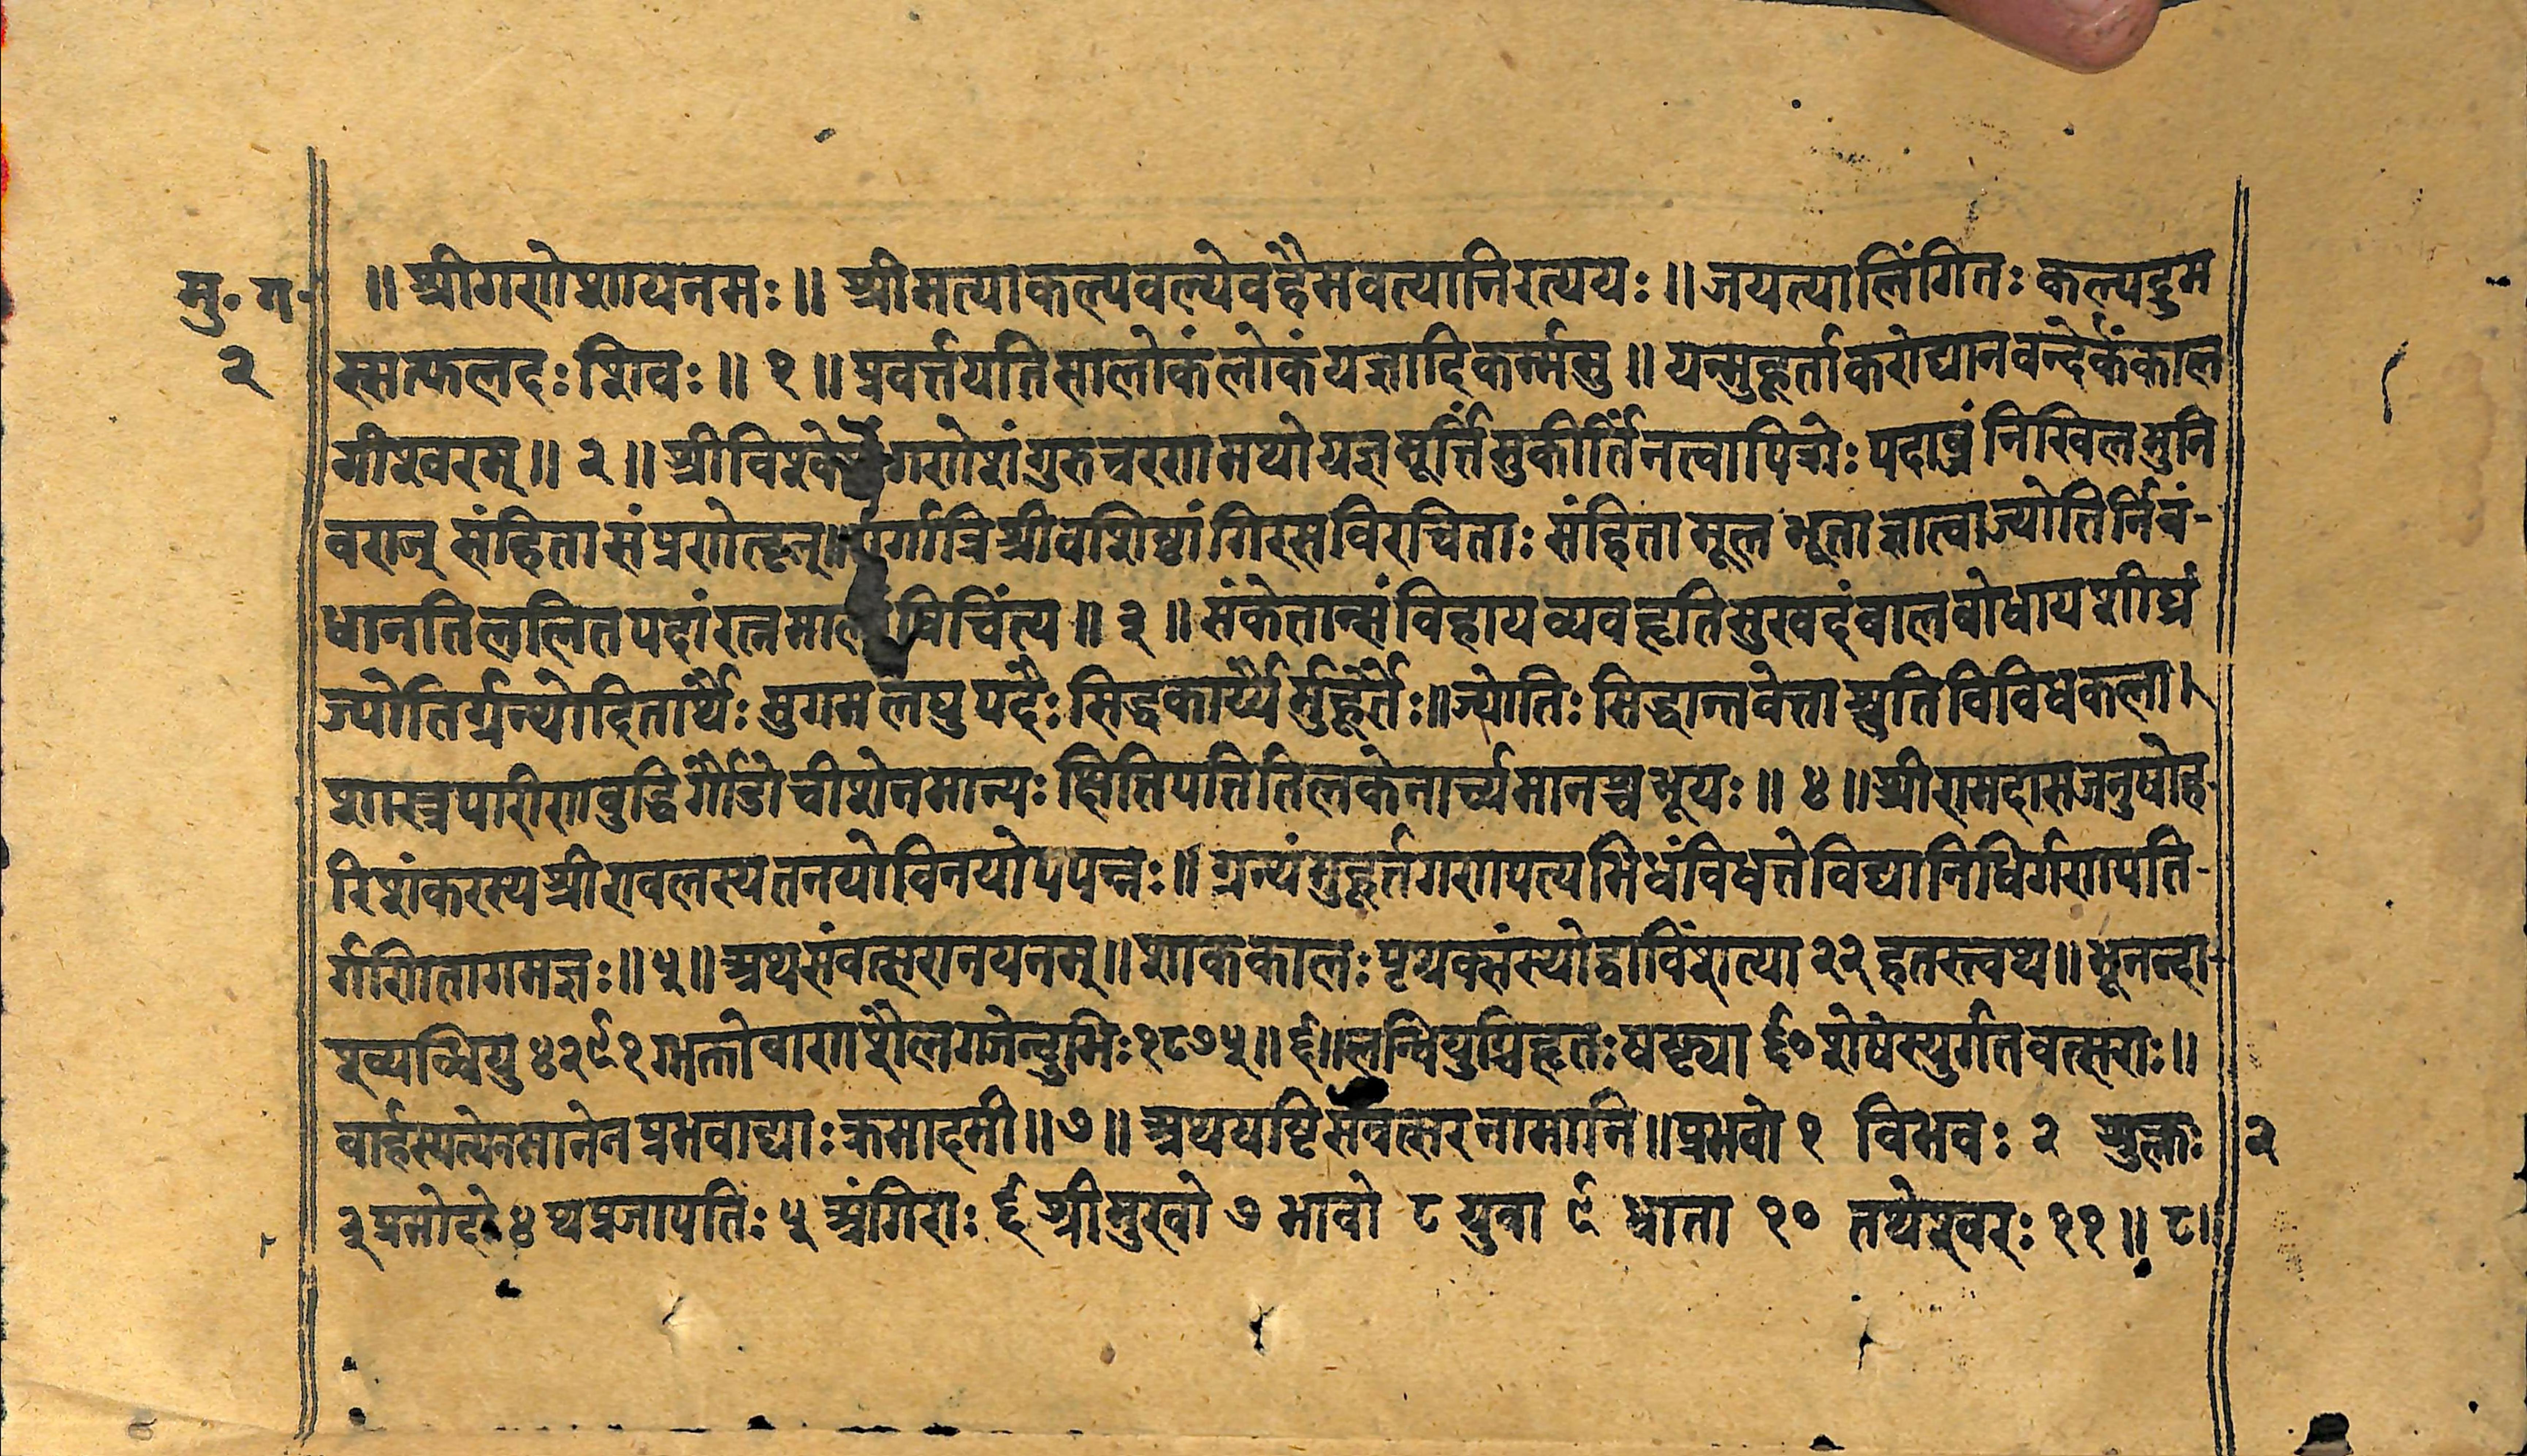 मु॰ ग॰
२
॥ श्रीगणेशायनमः॥ श्रीमत्याकल्पवल्येवहैमवत्यानिरत्ययः॥ जयत्यालिंगितः कल्पद्रुम
स्सत्फलदः शिवः॥ १॥ प्रवर्त्तयतिसालोकंलोकंयज्ञादिकर्म्मसु॥ यन्मुहूर्ताकरोद्यानवन्देर्कंकाल
मीश्वरम्॥ २॥ श्री गणेशंगुरुचरणामथोयज्ञमूर्त्तिंसुकीर्तिंनत्वापित्रोः पदाब्जंनिखिलमुनि
वरान् संहितासंप्रणेतृन्॥ गर्गात्रिश्रीवशिष्ठांगिरसविरचिताः संहितामूलभूताज्ञात्वाज्योतिर्निबं-
धानतिललितपदांरत्नमालांविचिंत्य॥ ३॥ संकेतान्संविहायव्यवहृतिसुखदंबालबोधायशीघ्रं
ज्योतिर्ग्रन्थोदितार्थैः सुगमलघुपदैः सिद्धकार्य्यैर्मुहूर्तैः॥ ज्योतिः सिद्धान्तवेत्ताश्रुतिविविधकला।
शास्त्रपारीणबुद्धिर्गौडोर्वीशेनमान्यः क्षितिपतितिलकेनार्च्यमानश्चभूयः॥ ४॥ श्रीरामदासजनुषोह-
रिशंकरस्यश्रीरावलस्यतनयोविनयोपपन्नः॥ ग्रन्थंमुहूर्तगणपत्यभिधंविधत्तेविद्यानिधिर्गणपति-
र्गणितागमज्ञः॥५॥ अथसंवत्सरानयनम्॥ शाककालः पृथक्संस्थोद्वाविंशत्या २२ हतस्त्वथ॥ भूनन्दा-
श्व्यब्धियु ४२९१ ग्भक्तोबाणशैलगजेन्दुभिः १८७५॥ ६॥ लब्धियुग्विहृतः षष्ट्या ६० शेषेस्युर्गतवत्सराः॥
बार्हस्पत्येनमानेनप्रभवाद्याः क्रमादमी॥७॥ अथषष्टिसंवत्सरनामानि॥ प्रभवो १ विभवः २ शुक्लः
३ प्रमोदो ४ थप्रजापतिः ५ अंगिराः ६ श्रीमुखो ७ भावो ८ युवा ९ धाता १० तथेश्वरः ११॥ ८॥
२